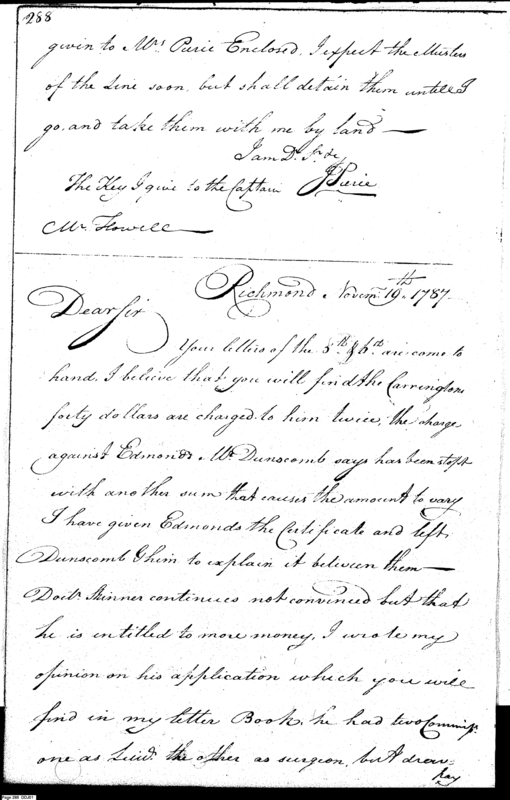 288
given to Mrs Pierce Enclosed. I expect the Musters
of the Line soon, but shall detain them untill I
go, and take them with me by land —
I am Dr Sr &c
The Key I give to the Captain JPierce
Mr. Howell —
Richmond Novemr. 19th. 1787.
Dear Sir
Your letters of the 5th. & 6th. are come to
hand, I believe that you will find the Carringtons
forty dollars are charged to him twice, the charge
against Edmonds Mr. Dunscomb says has been stopt
with another sum that causes the amount to vary
I have given Edmonds the Certificate and left
Dunscomb & him to explain it between them —
Doctr. Skinner continues not convinced but that
he is intitled to more money, I wrote my
opinion on his application which you will
find in my letter Book, he had two Commiss.
one as Lieut. the other as surgeon, but drew
Pay
Page 288 DDJ01